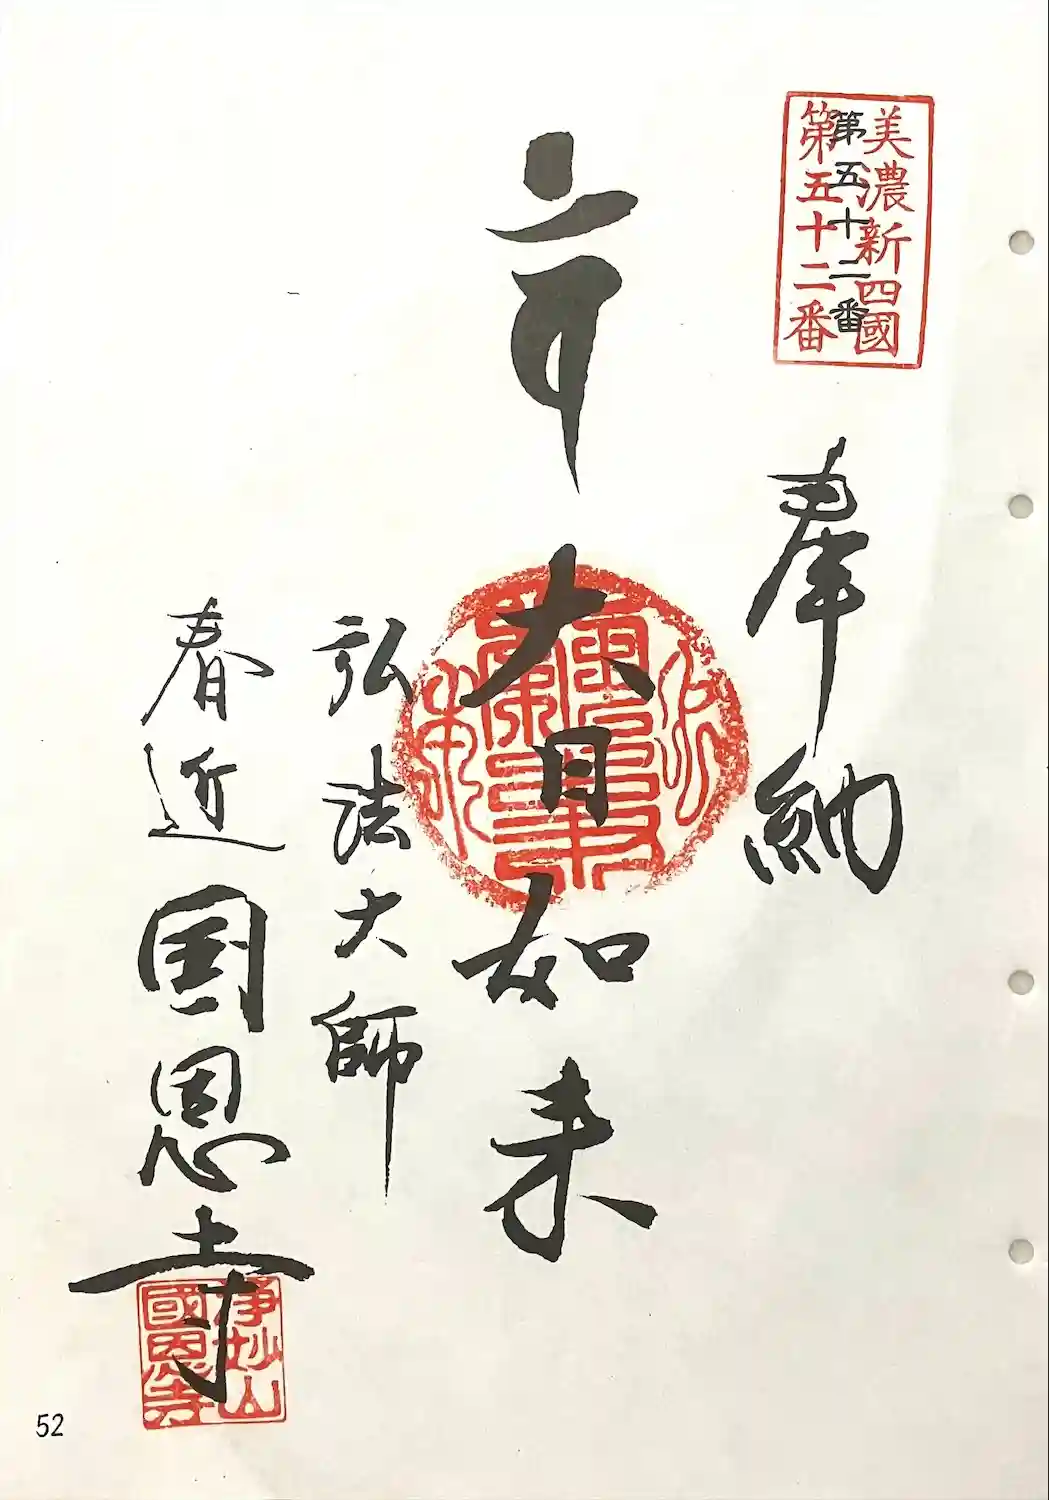 美濃新四國
第五十二番
第五十二番
奉納
大日如来
弘法大師
春近国恩寺
淨妙山
國恩寺
52